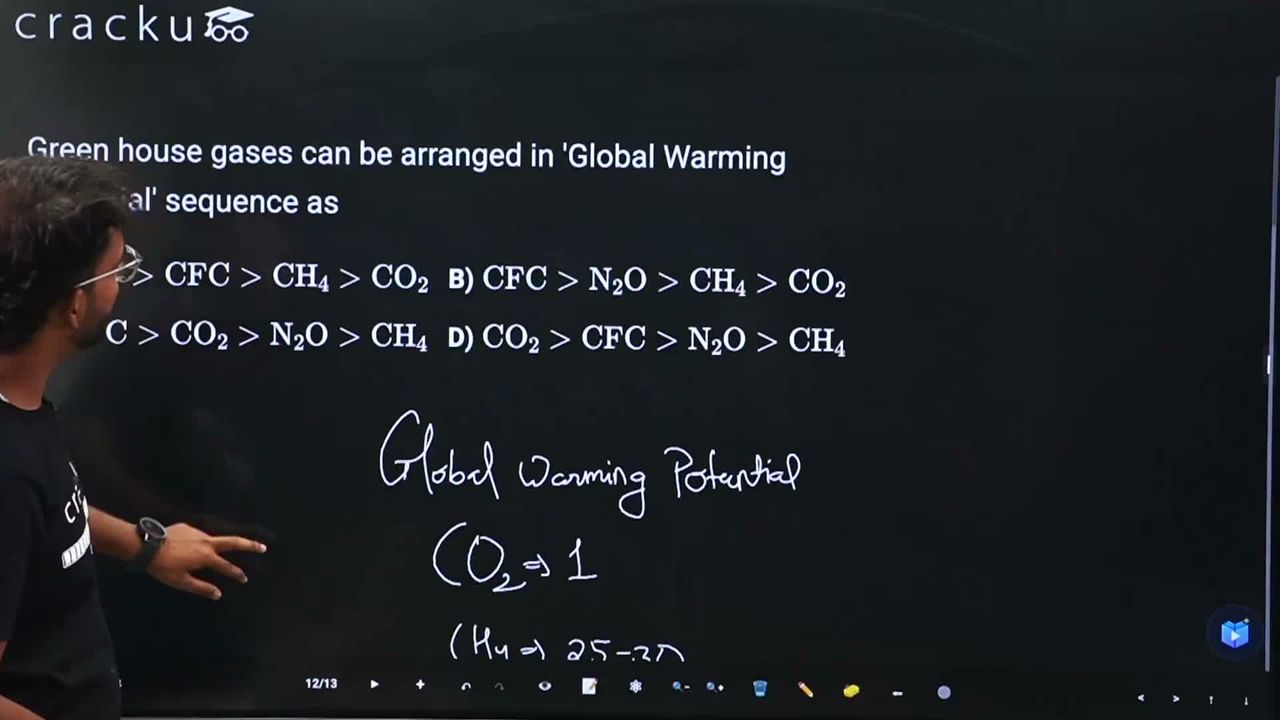 cracku
Green house gases can be arranged in 'Global Warming
al' sequence as
> CFC > CH₄ > CO₂ B) CFC > N₂O > CH₄ > CO₂
C > CO₂ > N₂O > CH₄ D) CO₂ > CFC > N₂O > CH₄
Global Warming Potential
CO₂ ⇒ 1
CH₄ ⇒ 25-
12/13